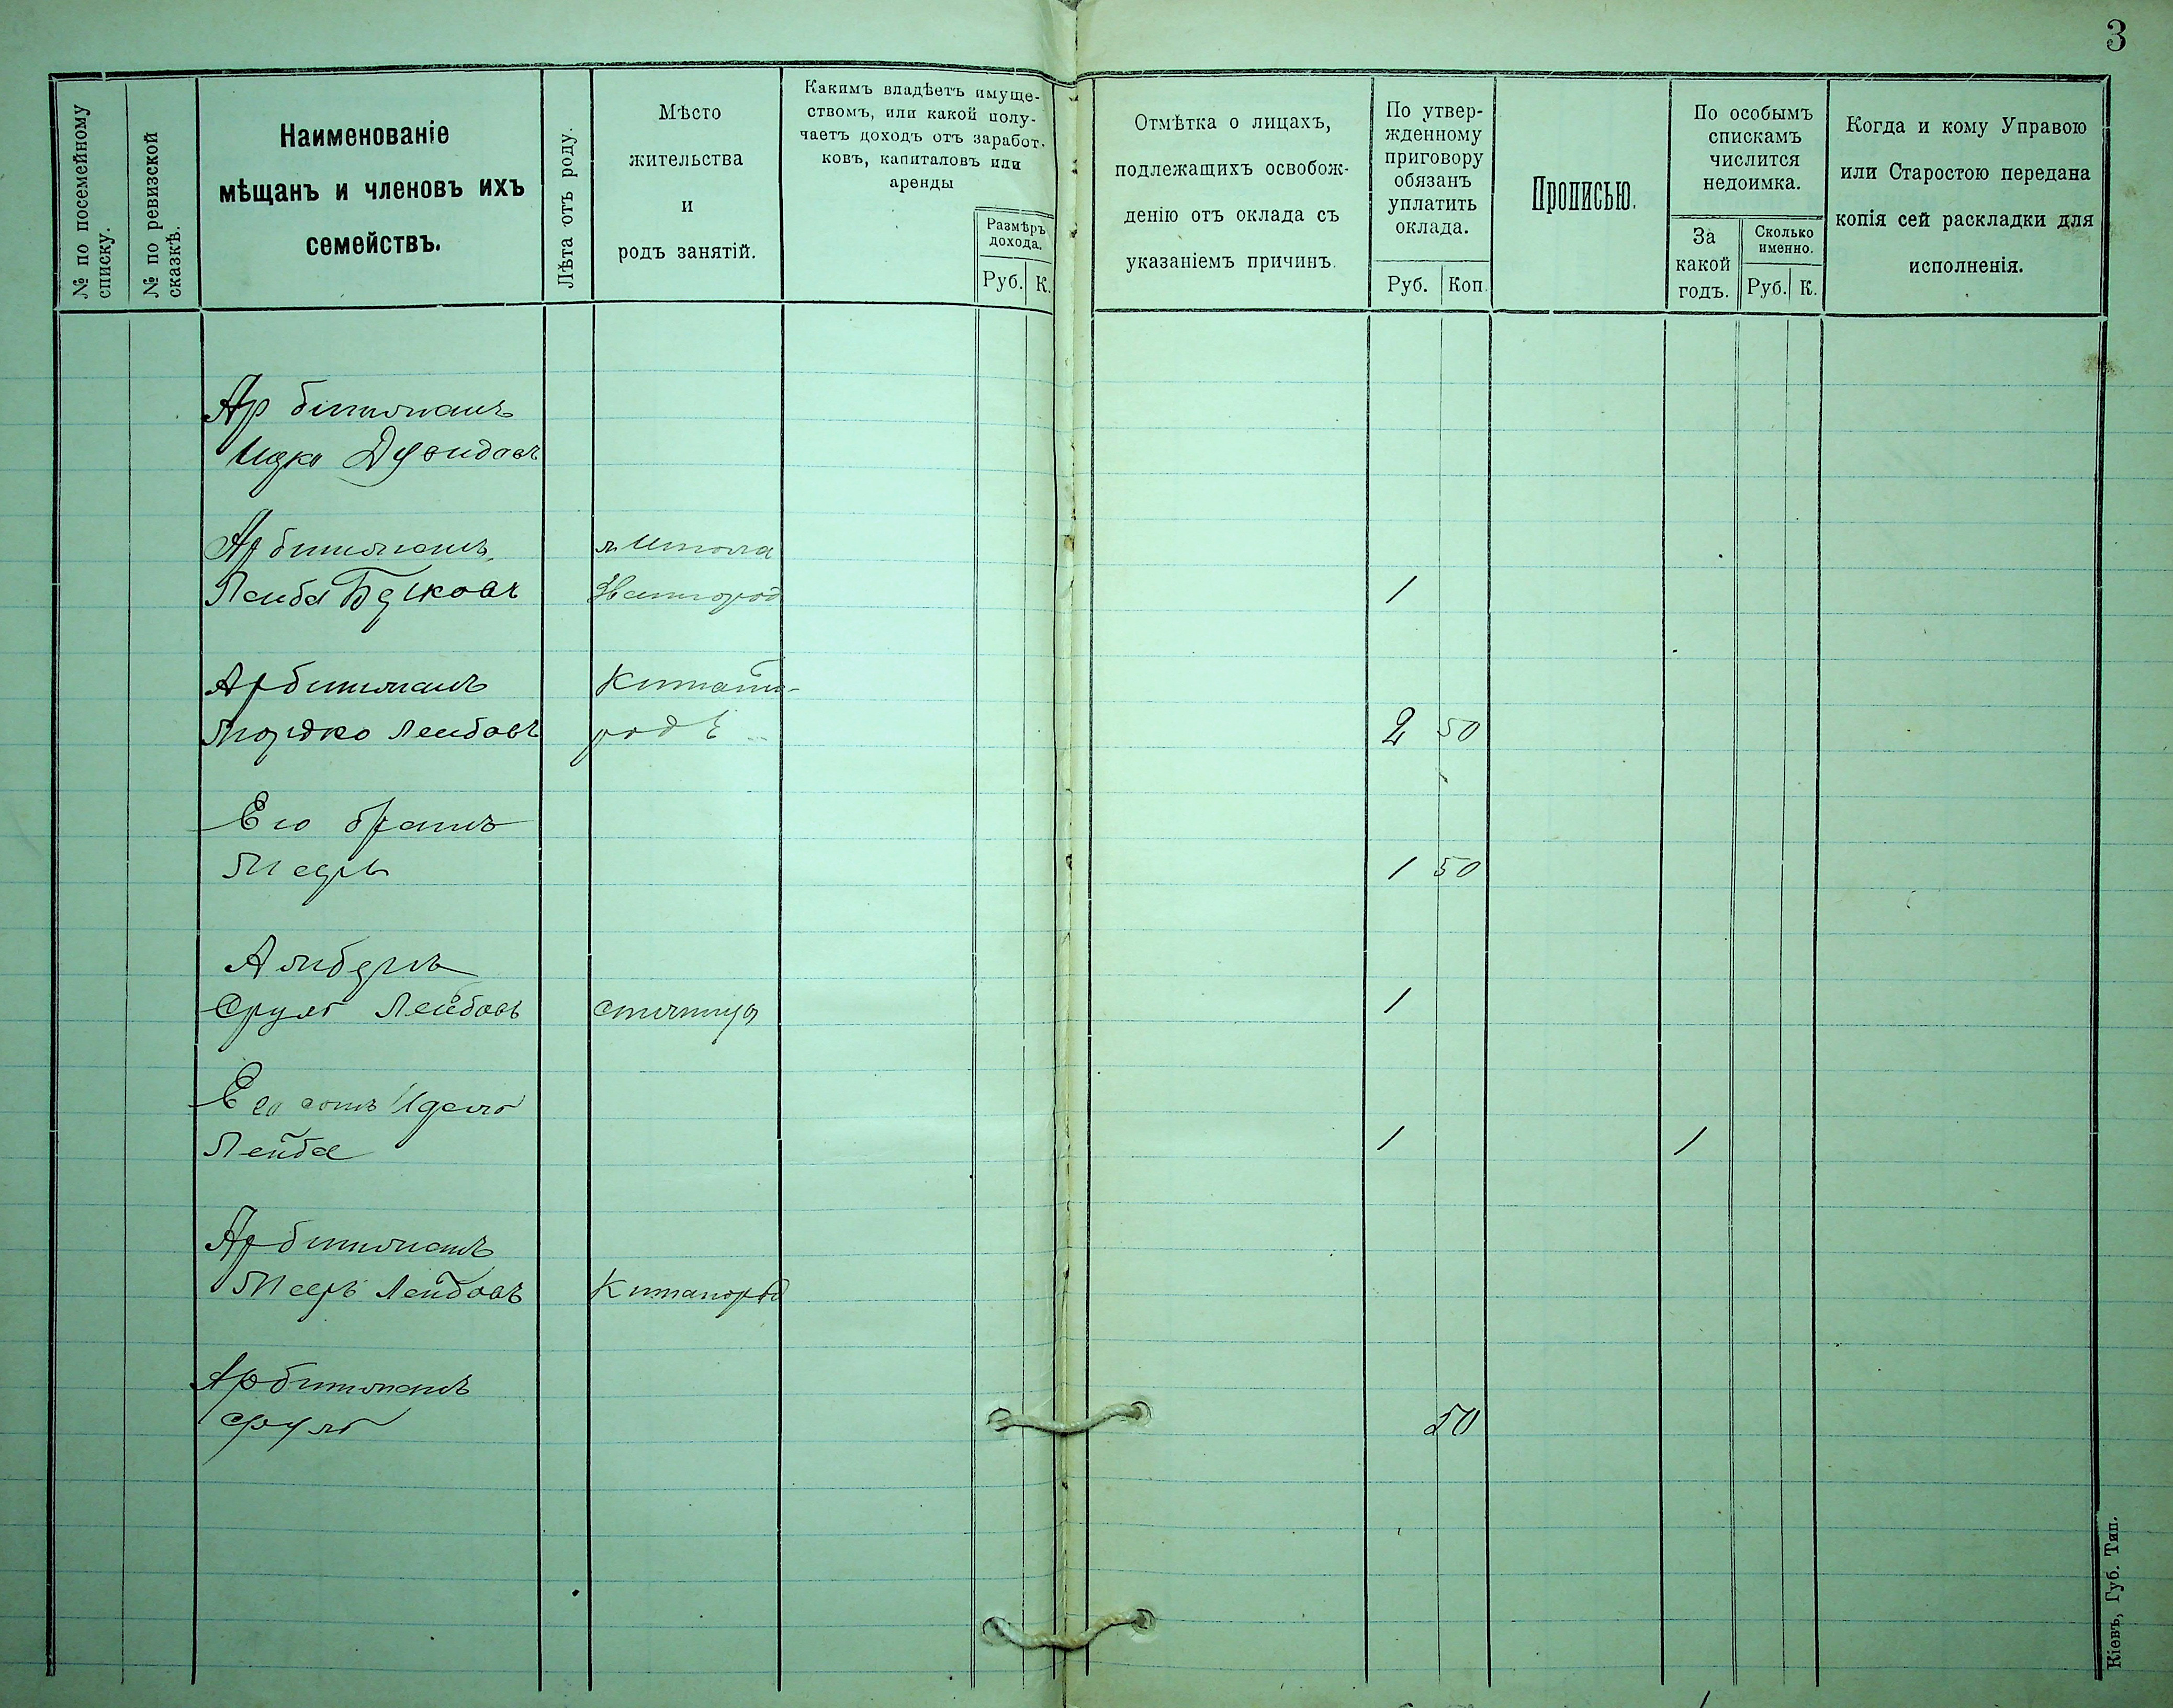 3
№ по посемейному
списку.
№ по ревизской
сказкѣ.
Наименованіе
мѣщанъ и членовъ ихъ
семействъ.
Лѣта отъ роду.
Мѣсто
жительства
и
родъ занятій.
Какимъ владѣетъ имуще-
ствомъ, или какой полу-
чаетъ доходъ отъ заработ-
ковъ, капиталовъ или
аренды
Размѣръ
дохода.
Руб. К.
Отмѣтка о лицахъ,
подлежащихъ освобож-
денію отъ оклада съ
указаніемъ причинъ.
По утвер-
жденному
приговору
обязанъ
уплатить
оклада.
Руб. Коп.
Прописью.
По особымъ
спискамъ
числится
недоимка.
За
какой
годъ.
Сколько
именно.
Руб. К.
Когда и кому Управою
или Старостою передана
копія сей раскладки для
исполненія.
Арбитманъ
Ицко Дувидовъ
Арбитманъ
Лейба 1
Арбитманъ
Мордко Лейбовъ родѣ 2 50
Его братъ
Мееръ 1 50
Сруль Лейбовъ 1
Его сынъ
Лейба 1 1
Арбитманъ
Мееръ Лейбовъ Китайгородъ
Арбитманъ
Сруль 50
Кіевъ, Губ. Тип.